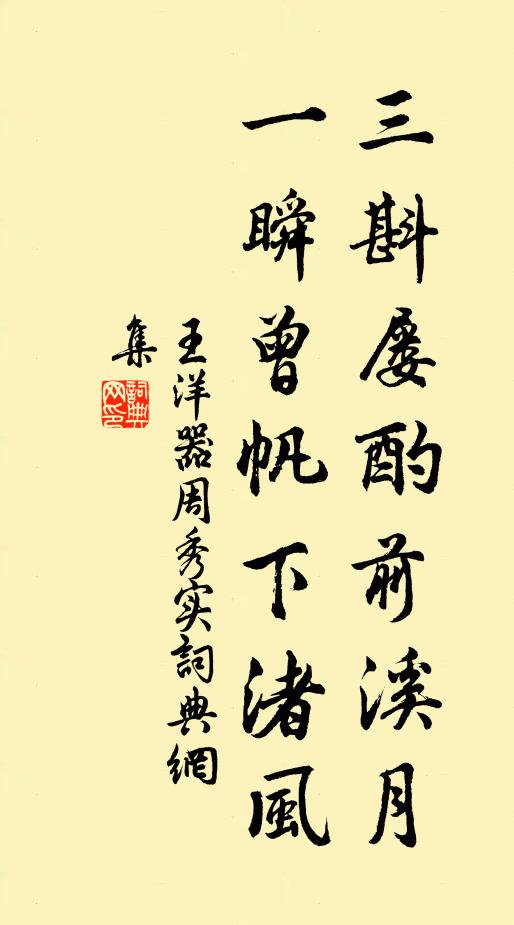 三斟屡酌前溪月
一瞬曾帆下渚風
王洋器周秀实詞典網
集
詞典
网印